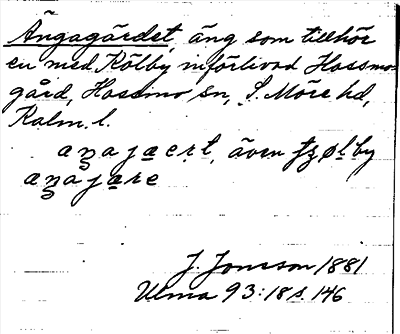 Ängagärdet, äng som tillhör
en med Kölby införlivad Hossmo
gård, Hossmo sn, S. Möre hd,
Kalm. l.
även
J. Jonsson 1881
Ulma 93:18 s. 146